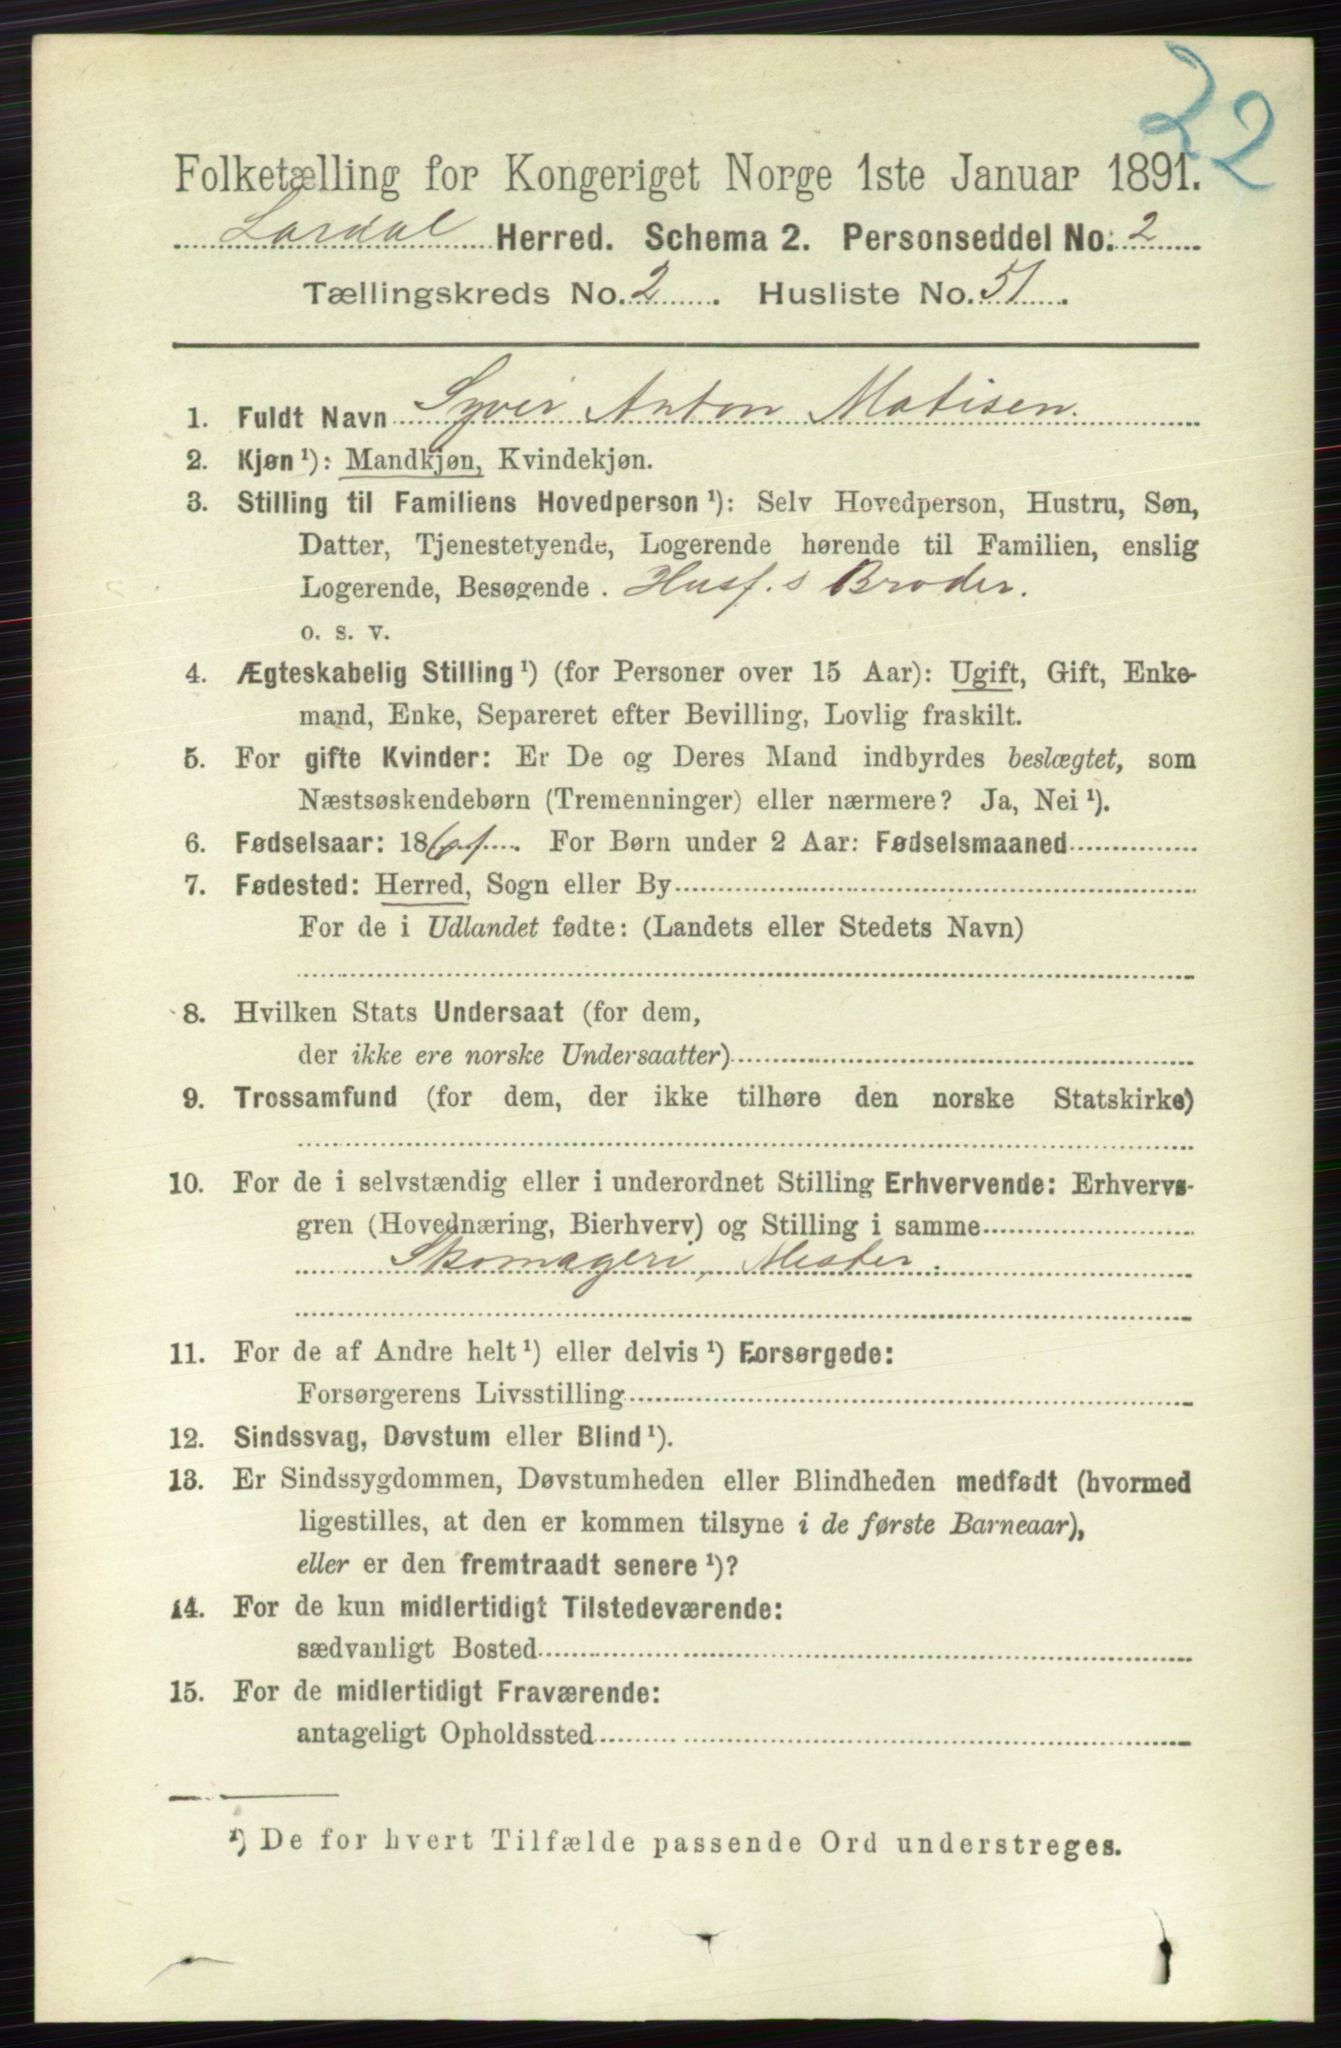 22
Folketælling for Kongeriget Norge 1ste Januar 1891.
Lardal Herred. Schema 2. Personseddel No. 2
Tællingskreds No. 2. Husliste No. 51.
1. Fuldt Navn Syver Anton Matisen.
2. Kjøn¹): Mandkjøn, Kvindekjøn.
3. Stilling til Familiens Hovedperson¹): Selv Hovedperson, Hustru, Søn,
Datter, Tjenestetyende, Logerende hørende til Familien, enslig
Logerende, Besøgende. Husf.s Broder.
o. s. v.
4. Ægteskabelig Stilling¹) (for Personer over 15 Aar): Ugift, Gift, Enke-
mand, Enke, Separeret efter Bevilling, Lovlig fraskilt.
5. For gifte Kvinder: Er De og Deres Mand indbyrdes beslægtet, som
Næstsøskendebørn (Tremenninger) eller nærmere? Ja, Nei¹).
6. Fødselsaar: 18 For Børn under 2 Aar: Fødselsmaaned
7. Fødested: Herred, Sogn eller By
For de i Udlandet fødte: (Landets eller Stedets Navn)
8. Hvilken Stats Undersaat (for dem,
der ikke ere norske Undersaatter)
9. Trossamfund (for dem, der ikke tilhøre den norske Statskirke)
10. For de i selvstændig eller i underordnet Stilling Erhvervende: Erhvervs-
gren (Hovednæring, Bierhverv) og Stilling i samme
Skomageri, Mester.
11. For de af Andre helt¹) eller delvis¹) Forsørgede:
Forsørgerens Livsstilling
12. Sindssvag, Døvstum eller Blind¹).
13. Er Sindssygdommen, Døvstumheden eller Blindheden medfødt (hvormed
ligestilles, at den er kommen tilsyne i de første Barneaar),
eller er den fremtraadt senere¹)?
14. For de kun midlertidigt Tilstedeværende:
sædvanligt Bosted
15. For de midlertidigt Fraværende:
antageligt Opholdssted
¹) De for hvert Tilfælde passende Ord understreges.